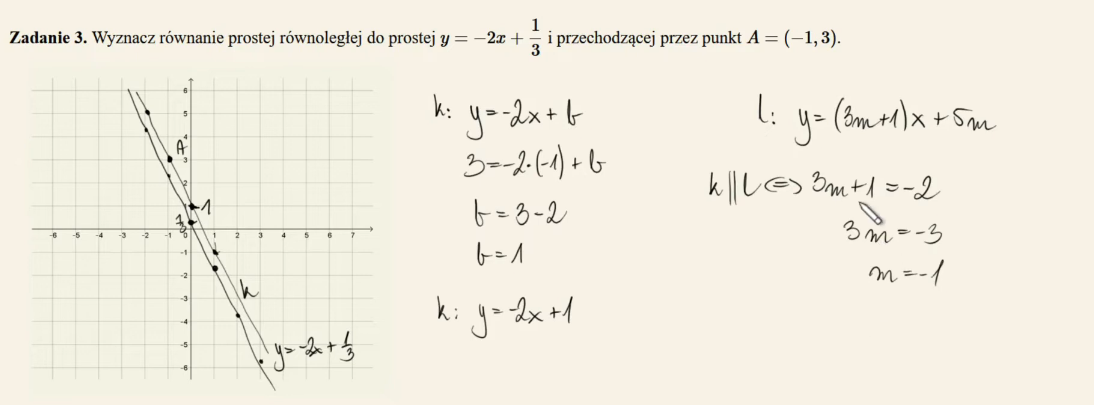 Zadanie 3. Wyznacz równanie prostej równoległej do prostej y = −2x + 1/3 i przechodzącej przez punkt A = (−1, 3).
6
5
4
3
2
1
-6 -5 -4 -3 -2 -1 0 1 2 3 4 5 6 7
-1
-2
-3
-4
-5
-6
A
1
1/3
k
y=-2x+1/3
k: y=-2x+b
3=-2·(-1)+b
b=3-2
b=1
k: y=-2x+1
l: y=(3m+1)x+5m
k||l⇔3m+1=-2
3m=-3
m=-1